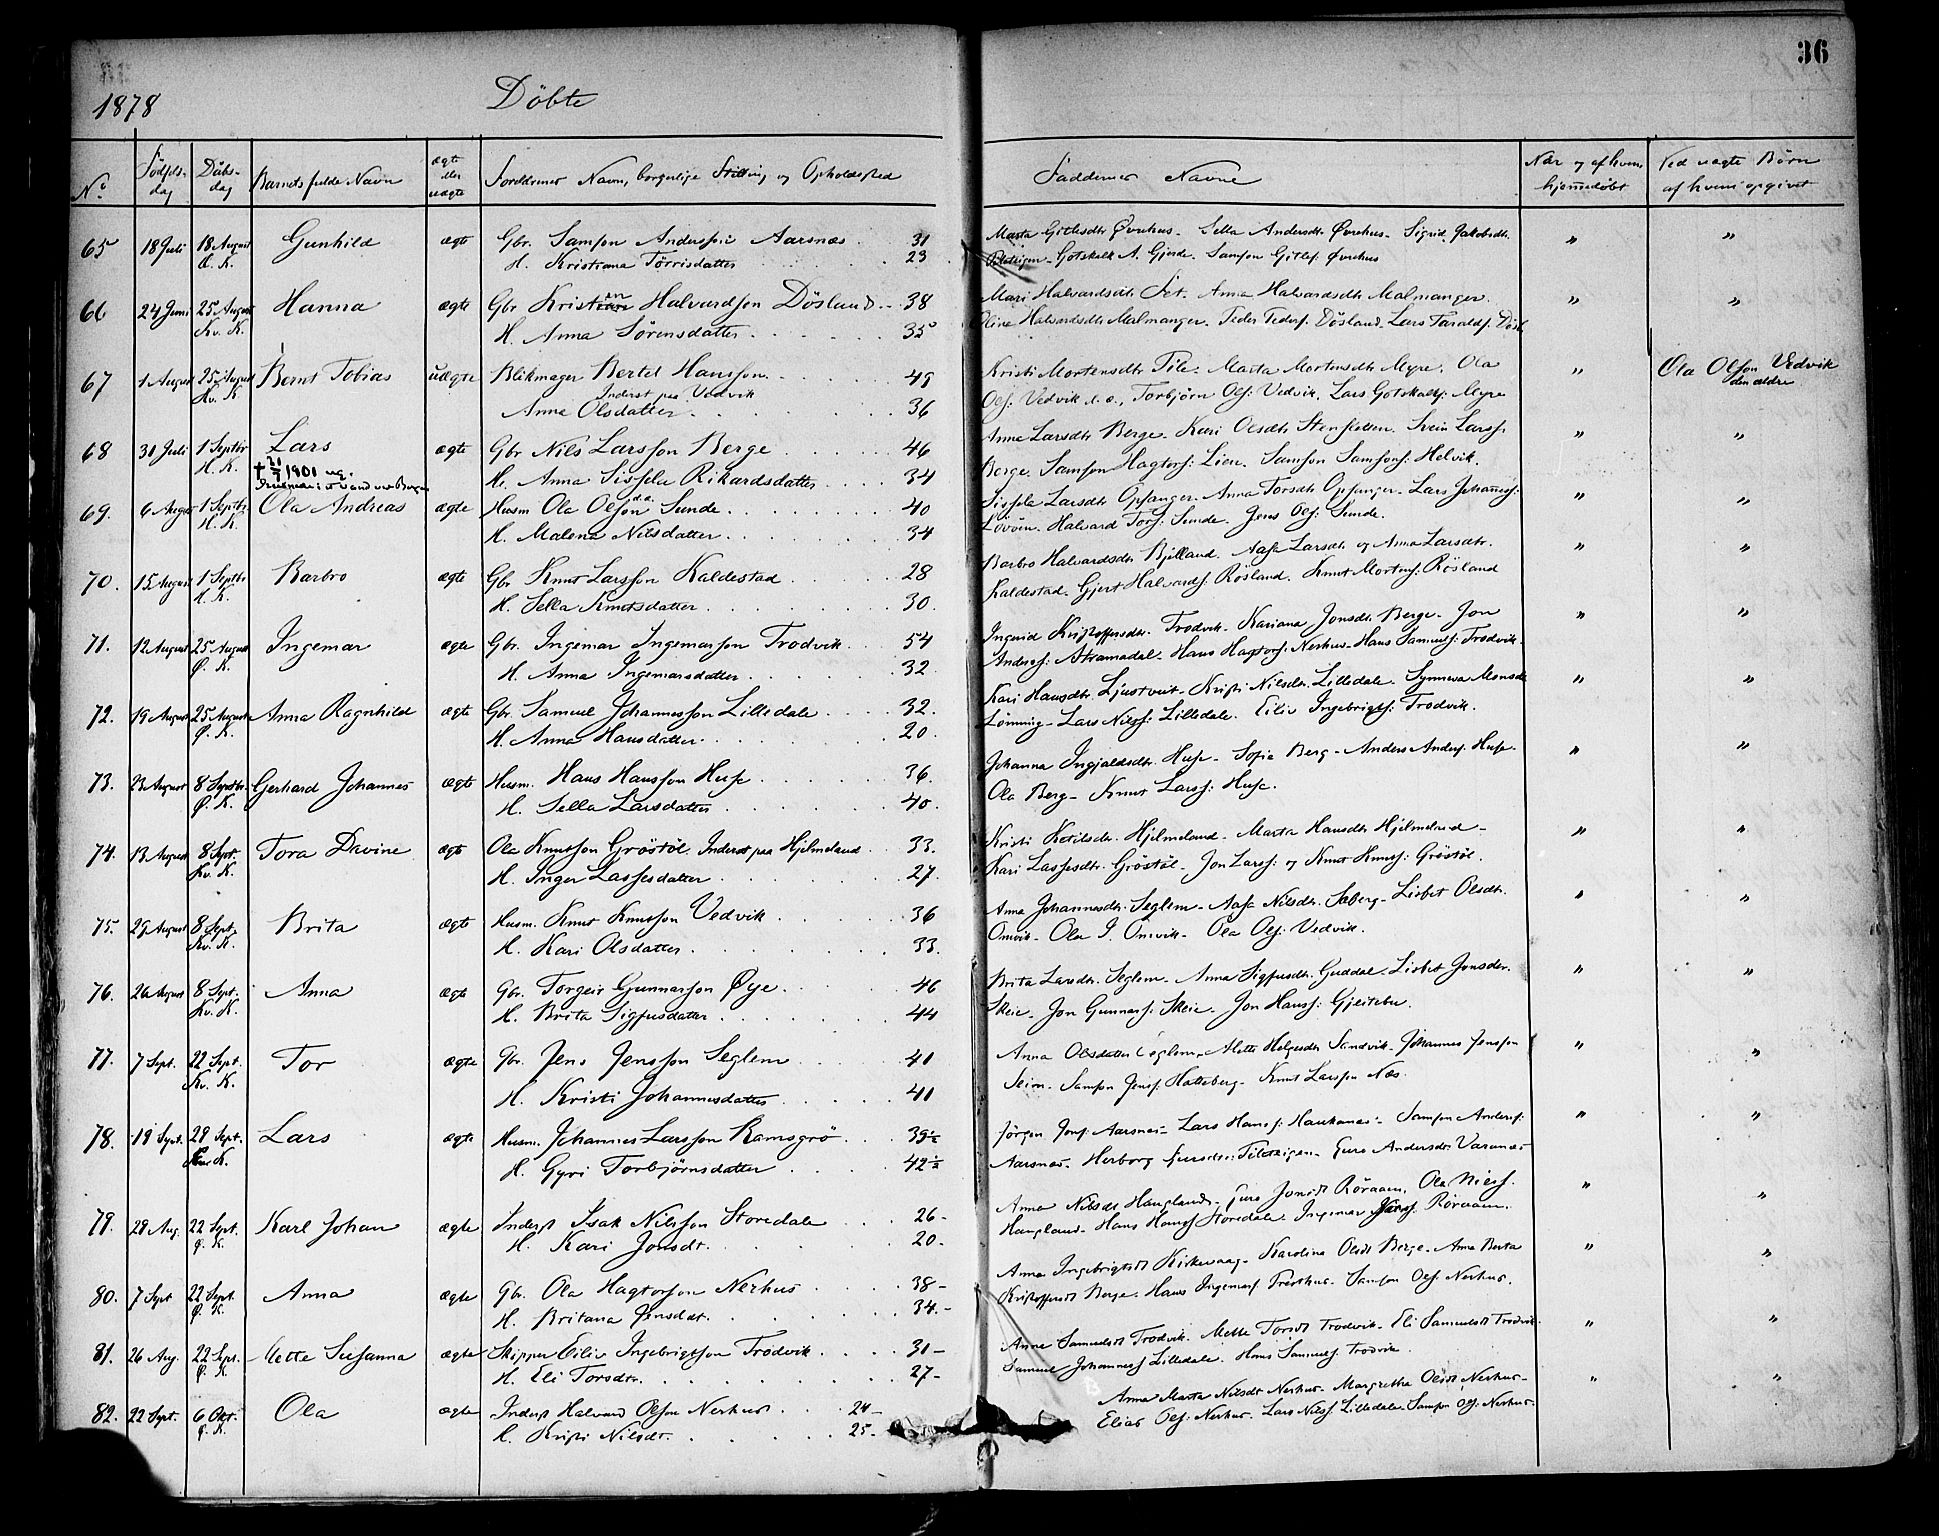 36
1878 Döbte
No. Födsels- dag Dåbs- dag Barnets fulde Navn ægte eller uægte Forældrenes Navn, borgerlige Stilling og Opholdssted Faddernes Navne Naar og af hvem hjemmedöbt Ved uægte Börn af hvem opgivet
65 18 Juli 18 August Gunhild ægte Gbr. Samson Anderssön Aarsnæs. 31 Marta Gitlesdtr Øvrehus - Sella Andersdtr Øvrehus - Sigrid Jakobsdtr. " "
Ø. K. H. Kristiana Tørrisdatter 23 Gotskalk A. Gjerde. Samson Gitlesf Øvrehus
66 24 Juni 25 August Hanna ægte Gbr Kristian Halvardson Dösland 38 Mari Halvardsdtr Set. Anna Halvardsdtr Malmanger. " "
Kv. K. H. Anna Sörensdatter 35 Oline Halvardsdtr Malmanger. Peder Pedersf. Dösland. Lars Taraldsf. Dösl
67 1 August 25 August Bernt Tobias uægte Blikmager Bertel Hansson 49 Kristi Mortensdtr Tile. Marta Mortensdtr Myre. Ola " Ola Olson Vedvik
Kv. K Inderst paa Vedvik den ældre
Anna Olsdatter 36 Olsf: Vedvik d. æ., Torbjörn Olsf: Vedvik. Lars Gotskalksf: Myre
68 31 Juli 1 Septbr Lars ægte Gbr Nils Larsson Berge 46 Anna Larsdtr Berge. Kari Olsdtr Stensletten. Svein Larsf. " "
H. K. † 21/7 1901 ug. H. Anna Sissela Rikardsdatter 34 Berge. Samson Hagtorsf: Lien. Samson Samsonsf: Helvik.
69. 6 August 1 Septbr Ola Andreas ægte Husm Ola Olson d.æ. Sunde 40 Sissela Larsdtr Opsanger. Anna Torsdtr Opsanger. Lars Johannesf: " "
H. K. H. Malena Nilsdatter 34 Halvard Torsf. Sunde. Jens Olsf: Sunde.
70. 15 August 1 Septbr Barbro ægte Gbr Knut Larsson Kaldestad 28 Barbro Halvardsdtr Bjelland. Aasa Larsdtr og Anna Larsdtr. " "
H. K. H. Sella Knutsdatter 30. Kaldestad. Gjert Halvardsf: Røsland. Knut Mortensf: Røsland
71. 12 August 25 August Ingemar ægte Gbr. Ingemar Ingemarsson Trodvik 54 Ingerid Kristoffersdtr. Trodvik. Kariana Jonsdtr Berge. Jon " "
Ø. K. H. Anna Ingemarsdatter 32 Andersf: Akramadal. Hans Hagtorsf: Nerhus. Hans Samuelsf: Trodvik.
72. 19 August 25 August Anna Ragnhild ægte Gbr. Samuel Johannesson Lilledale 32. Kari Hansdtr. Ljustveit. Kristi Nilsdtr. Lilledale. Synneva Monsdtr " "
Ø. K. H. Anna Hansdatter. 20. Lönning. Lars Nilsf: Lilledale. Eiliv Ingebrigtsf: Trodvik.
73. 23 August 8 Septbr. Gerhard Johannes ægte Husm. Hans Hansson Huse 36. Johanna Ingjaldsdtr. Huse. Sofie Berg. Anders Andersf. Huse. " "
Ø. K. H. Sella Larsdatter 40. Ola Berg. Knut Larsf: Huse.
74. 13 August 8 Sept. Tora Davine ægte Ola Knutsson Gröstöl. Inderst paa Hjelmeland. 33. Kristi Ketilsdtr. Hjelmeland. Marta Hansdtr Hjelmeland " "
Kv. K. H. Inger Lassesdatter 27. Kari Lassesdtr. Gröstöl. Jon Larsf: og Knut Knutsf: Gröstöl.
75. 29 August 8 Sept. Brita ægte Husm. Knut Knutsson Vedvik 36 Anna Johannesdtr. Seglem. Aasa Nilsdtr. Sæberg. Lisbet Olsdtr. " "
Kv. K. H. Kari Olsdatter 33. Omvik. Ola I. Omvik. Ola Olsf: Vedvik.
76. 26 August 8 Sept. Anna ægte Gbr. Torgeir Gunnarsson Øye. 46 Brita Larsdtr. Seglem. Anna Sigfusdtr. Guddal. Lisbet Jonsdtr. " "
Kv. K. H. Brita Sigfusdatter 44 Skeie. Jon Gunnarsf: Skeie. Jon Hansf: Gjeitebu.
77. 7 Sept. 22 Sept. Tor ægte Gbr. Jens Jensson Seglem 41 Anna Olsdatter Seglem. Mette Helgesdtr Sandvik. Johannes Jensson " "
Kv. K. H. Kristi Johannesdatter 41 Seim. Samson Jensf: Hatteberg. Knut Larsson Næs.
78. 19 Sept. 29 Sept. Lars ægte Husm. Johannes Larsson Ramsgrö 39½ Jörgen Aarsnæs. Lars Hansf: Haukanæs. Samson Andersf: " "
K. H. Gyri Torbjörnsdatter 42½ Aarsnæs. Herborg Guro Andersdtr. Varanæs
79. 28 Aug. 22 Sept. Karl Johan ægte Inderst Isak Nilsson Storedale 26- Anna Nilsdt Haugland. Guro Jonsdt Röraam. Ola Nilsf. " "
Ø. K. H. Kari Jonsdt. 20- Haugland. Hans Hansf Storedale. Ingemar Röraam.
80. 7 Sept 22 Sept. Anna ægte Gbr. Ola Hagtorson Nerhus 38- Anna Ingebrigtsdt Kirkevaag. Karolina Olsdt Berge. Anna Berta " "
Ø. K. H. Britana Jensdat. 34.- Kristoffersdt Berge. Hans Ingemarsf Prersthus. Samson Olsf: Nerhus.
81. 26 Aug. 22 Sept. Mette Susanna ægte Skipper Eiliv Ingebrigtson Trodvik 31- Anna Samuelsdt Trodvik. Mette Torsdt Trodvik. Eli Samuelsdt Trodvik. " "
Ø. K. H. Eli Torsdtr. 27- Samuel Johannesf Lilledale. Hans Samuelsf Trodvik.
82. 22 Sept. 6 Okt. Ola ægte Inderst Halvard Olson Nerhus 24- Anna Marta Nilsdt Nerhus. Margretha Olsdt Nerhus. " "
Ø. K. H. Kristi Nilsdt. 25- Elias Olsf: Nerhus. Lars Nilsf Lilledale. Samson Olsf. Nerhus.